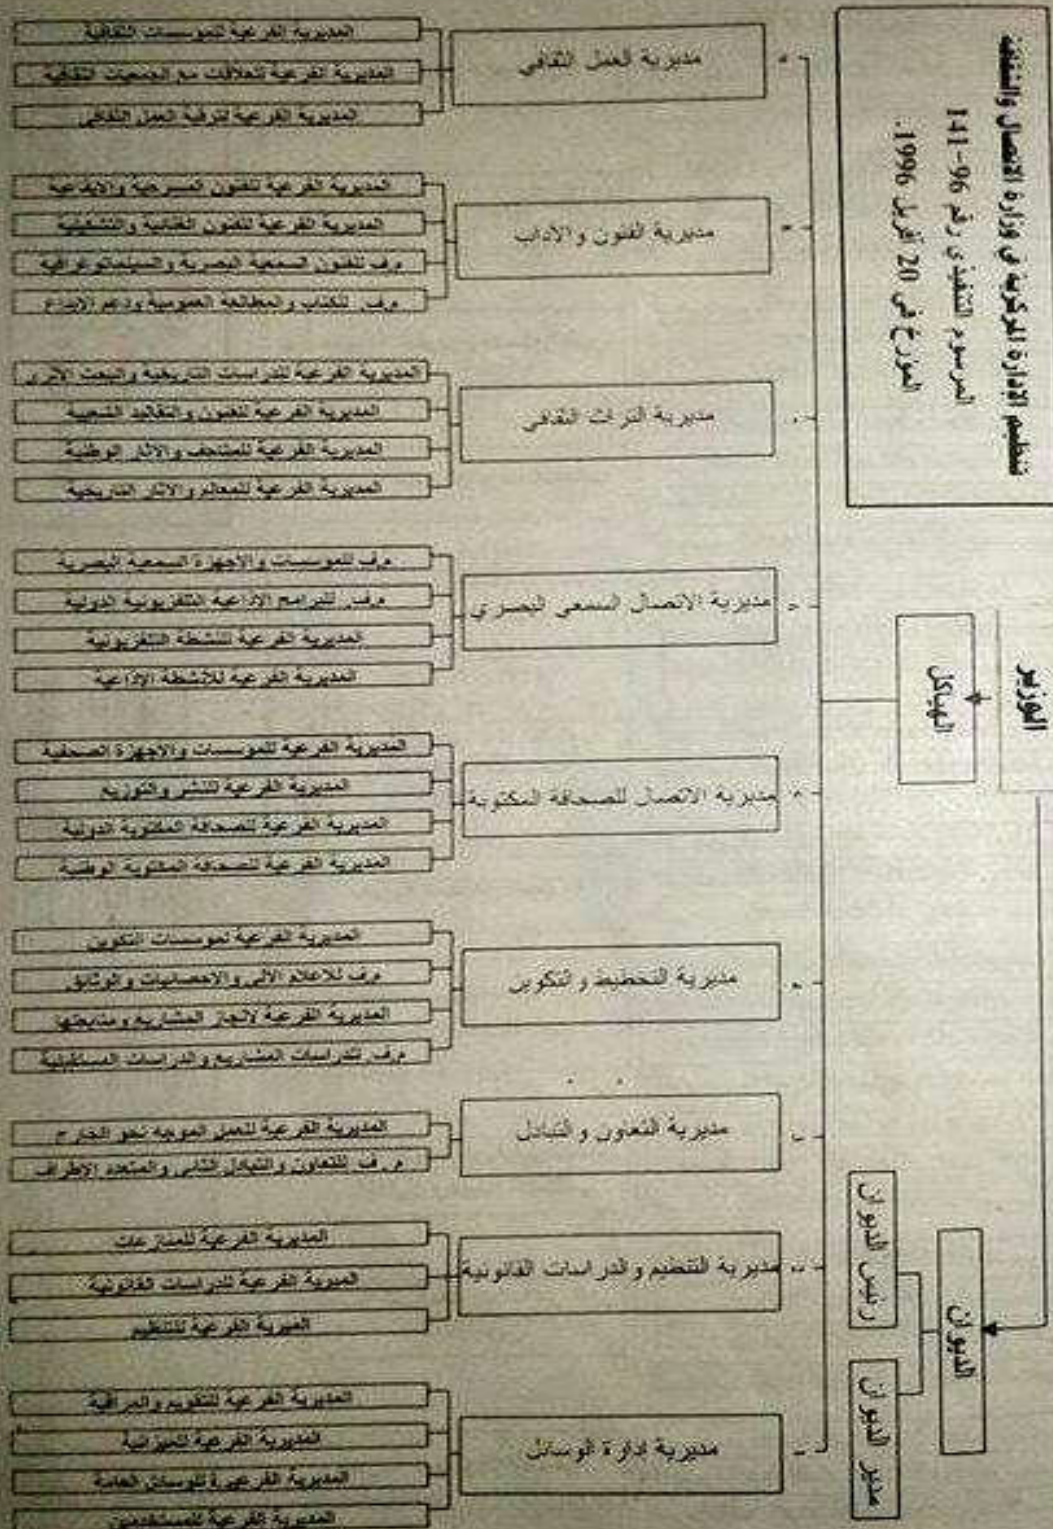 تنظيم الإدارة المركزية في وزارة الاتصال والثقافة
المرسوم التنفيذي رقم 96-141
المؤرخ في 20 أفريل 1996.
الوزير
الهياكل
الديوان
رئيس الديوان
مدير الديوان
مديرية العمل الثقافي
المديرية الفرعية للمؤسسات الثقافية
المديرية الفرعية للعلاقات مع الجمعيات الثقافية
المديرية الفرعية لترقية العمل الثقافي
مديرية الفنون والآداب
المديرية الفرعية للفنون المسرحية والايقاعية
المديرية الفرعية للفنون الغنائية والتشكيلية
م.ف للفنون السمعية البصرية والسينماتوغرافية
م.ف. للكتاب والمطالعة العمومية ودعم الابداع
مديرية التراث الثقافي
المديرية الفرعية للدراسات التاريخية والبحث الأثري
المديرية الفرعية للفنون والتقاليد الشعبية
المديرية الفرعية للمتاحف والآثار الوطنية
المديرية الفرعية للمعالم والآثار التاريخية
مديرية الاتصال السمعي البصري
م.ف للمؤسسات والأجهزة السمعية البصرية
م.ف. للبرامج الإذاعية التلفزيونية الدولية
المديرية الفرعية للنشطة التلفزيونية
المديرية الفرعية للأنشطة الإذاعية
مديرية الاتصال للصحافة المكتوبة
المديرية الفرعية للمؤسسات والأجهزة الصحفية
المديرية الفرعية للنشر والتوزيع
المديرية الفرعية للصحافة المكتوبة الدولية
المديرية الفرعية للصحافة المكتوبة الوطنية
مديرية التخطيط والتكوين
المديرية الفرعية لمؤسسات التكوين
م.ف للاعلام الآلي والاحصائيات والوثائق
المديرية الفرعية لانجاز المشاريع ومتابعتها
م.ف. لدراسات المشاريع والدراسات المستقبلية
مديرية التعاون والتبادل
المديرية الفرعية للعمل الموجه نحو الخارج
م.ف. للتعاون والتبادل الثنائي والمتعدد الاطراف
مديرية التنظيم والدراسات القانونية
المديرية الفرعية للمنازعات
الميرية الفرعية للدراسات القانونية
الميرية الفرعية للتنظيم
مديرية إدارة الوسائل
المديرية الفرعية للتقويم والمراقبة
المديرية الفرعية للميزانية
المديرية الفرعية للوسائل العامة
المديرية الفرعية للمستخدمين